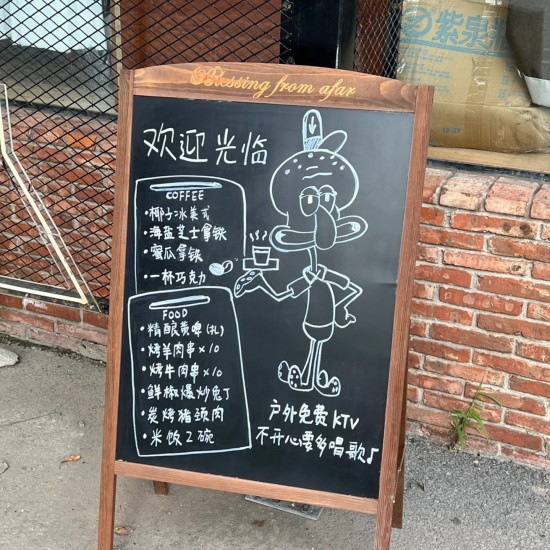 Blessing from afar
欢迎光临
COFFEE
·椰子冰美式
·海盐芝士拿铁
·蜜瓜拿铁
·一杯巧克力
FOOD
·精酿黄啤(扎)
·烤羊肉串×10
·烤牛肉串×10
·鲜椒爆炒兔丁
·炭烤猪颈肉
·米饭2碗
户外免费KTV
不开心要多唱歌♪
紫泉